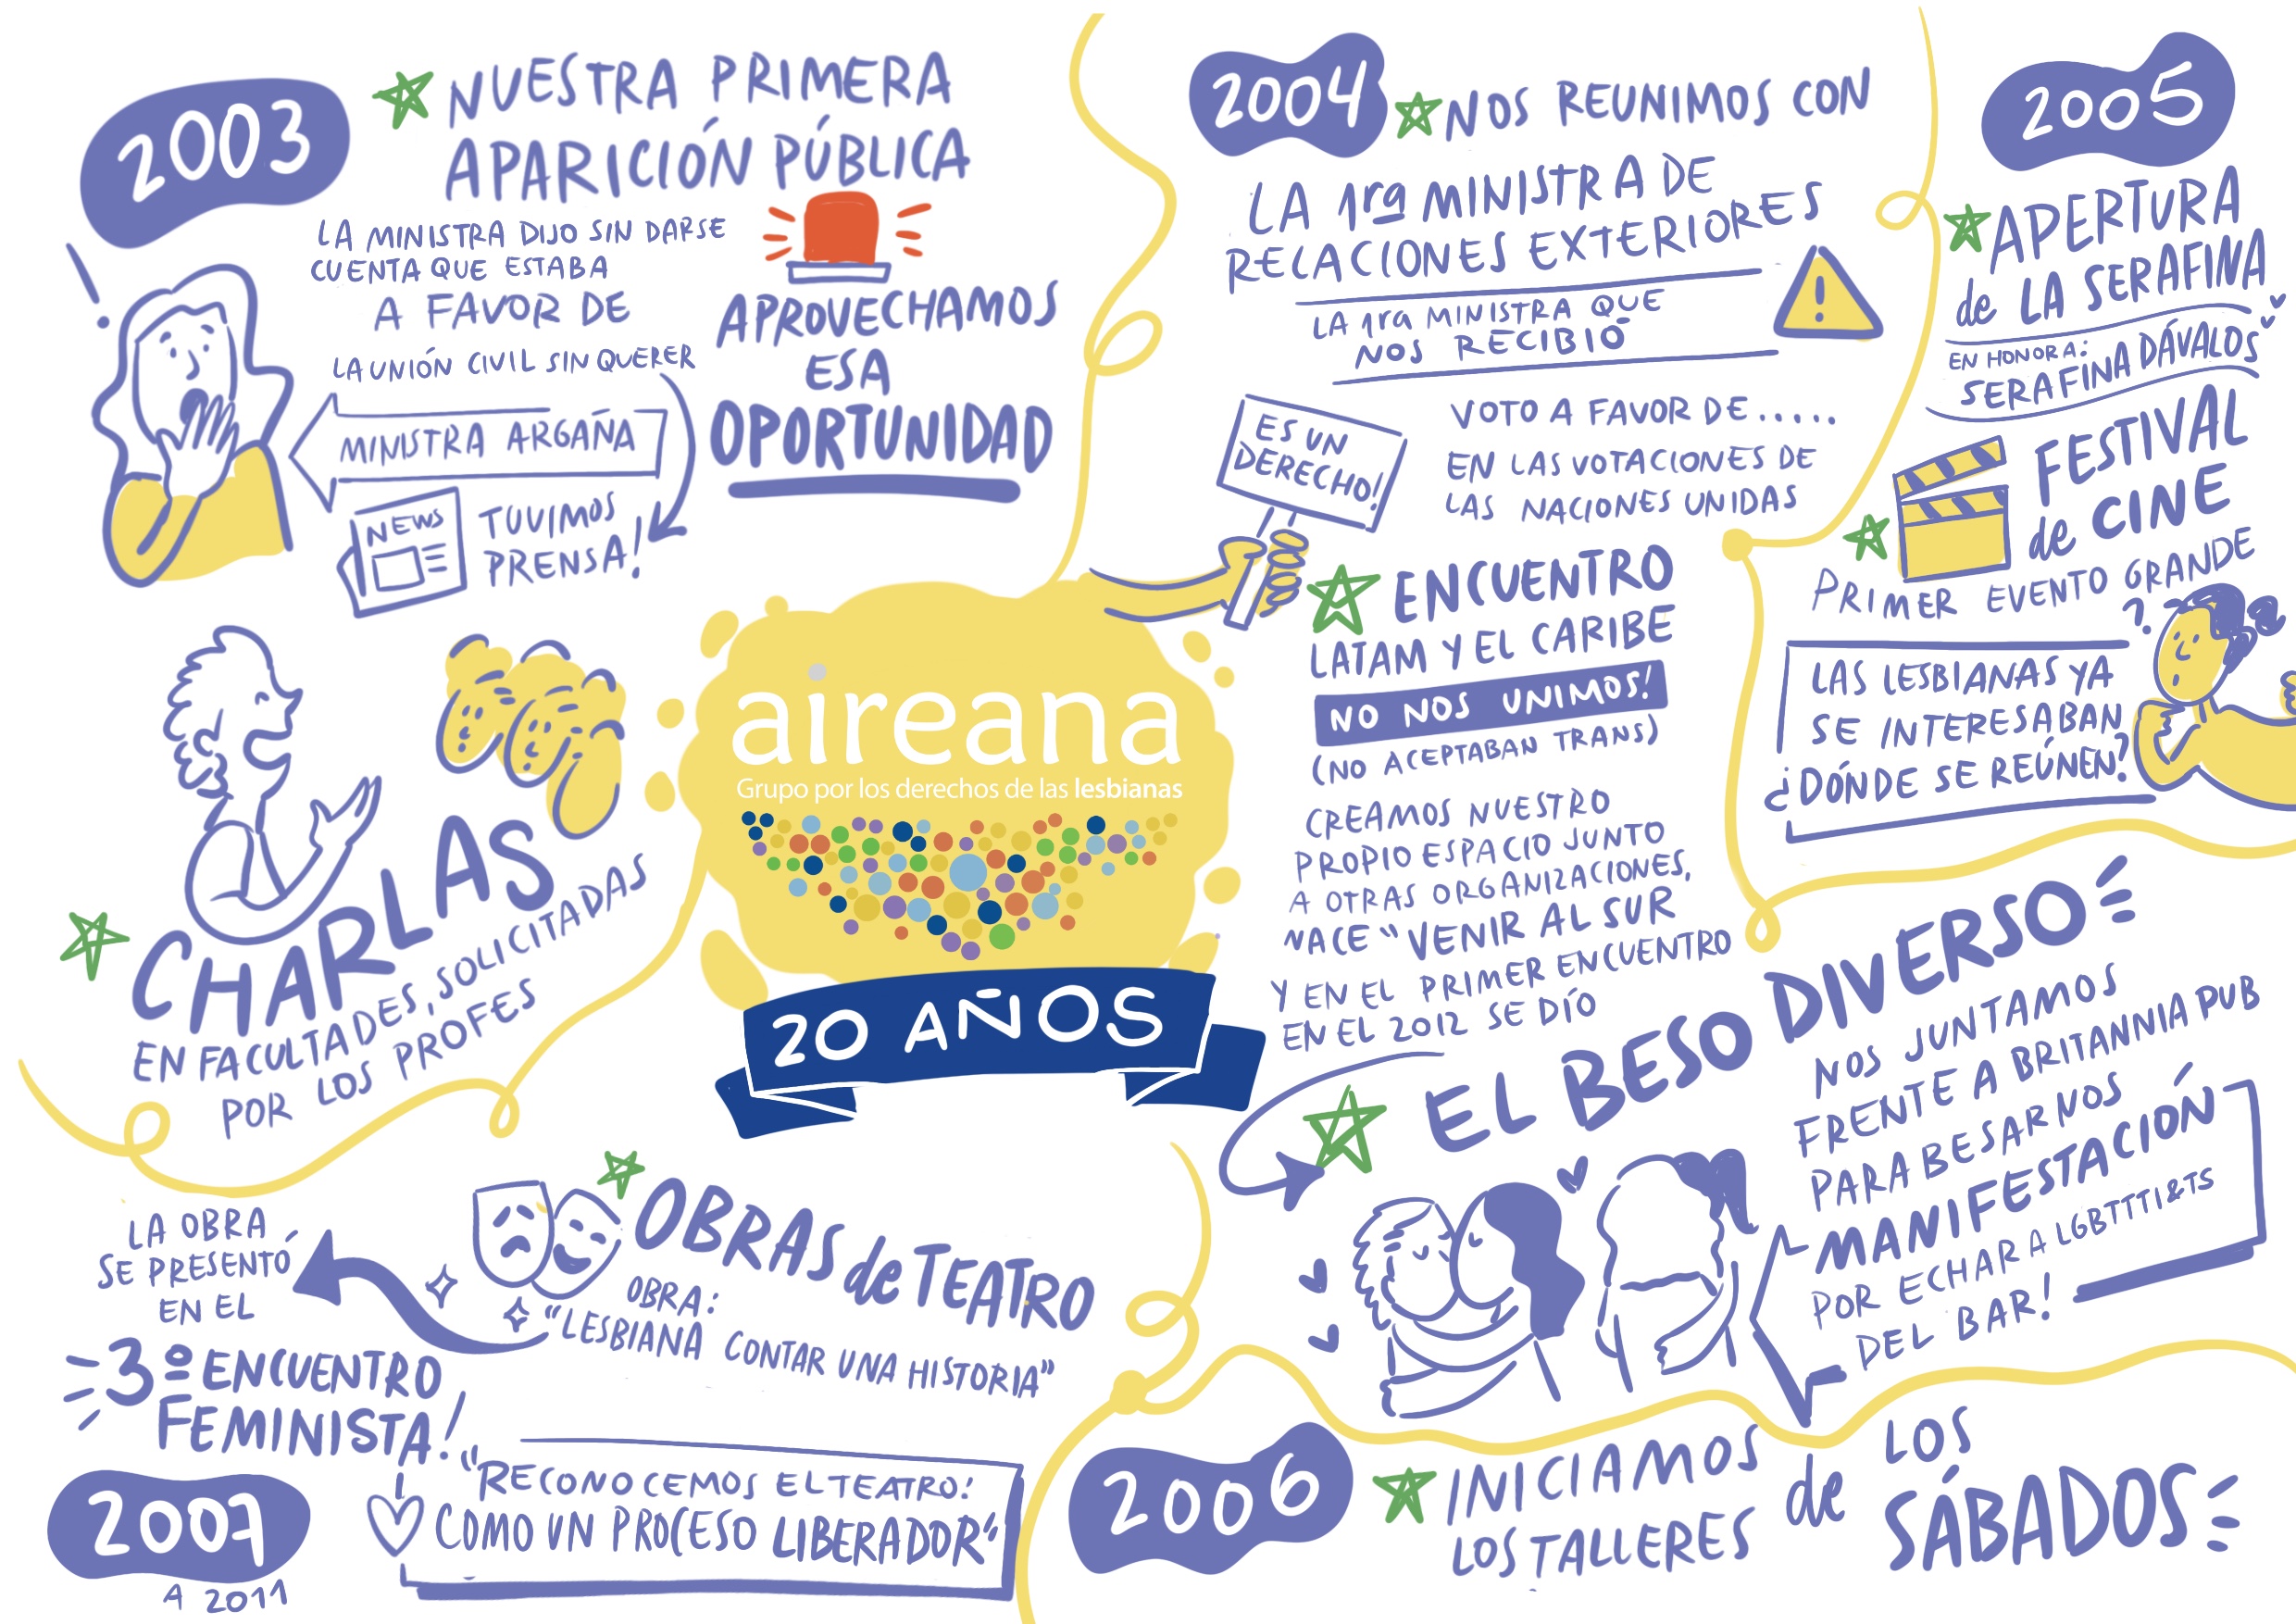 2003
NUESTRA PRIMERA
APARICIÓN PÚBLICA
LA MINISTRA DIJO SIN DARSE
CUENTA QUE ESTABA
A FAVOR DE
LA UNIÓN CIVIL SIN QUERER
MINISTRA ARGAÑA
NEWS
TUVIMOS
PRENSA!
APROVECHAMOS
ESA
OPORTUNIDAD
CHARLAS
EN FACULTADES, SOLICITADAS
POR LOS PROFES
aireana
Grupo por los derechos de las lesbianas
20 AÑOS
2004
NOS REUNIMOS CON
LA 1ra MINISTRA DE
RELACIONES EXTERIORES
LA 1ra MINISTRA QUE
NOS RECIBIÓ
ES UN
DERECHO!
VOTO A FAVOR DE.....
EN LAS VOTACIONES DE
LAS NACIONES UNIDAS
ENCUENTRO
LATAM Y EL CARIBE
NO NOS UNIMOS!
(NO ACEPTABAN TRANS)
CREAMOS NUESTRO
PROPIO ESPACIO JUNTO
A OTRAS ORGANIZACIONES,
NACE "VENIR AL SUR
Y EN EL PRIMER ENCUENTRO
EN EL 2012 SE DÍO
EL BESO DIVERSO
NOS JUNTAMOS
FRENTE A BRITANNIA PUB
PARA BESARNOS
MANIFESTACIÓN
POR ECHAR A LGBTTTI&TS
DEL BAR!
2005
APERTURA
de LA SERAFINA
EN HONOR A:
SERAFINA DÁVALOS
FESTIVAL
de CINE
PRIMER EVENTO GRANDE
?
LAS LESBIANAS YA
SE INTERESABAN
¿DÓNDE SE REÚNEN?
2006
INICIAMOS
LOS TALLERES
de
LOS
SÁBADOS
2007
A 2011
OBRAS de TEATRO
OBRA:
"LESBIANA CONTAR UNA HISTORIA"
LA OBRA
SE PRESENTÓ
EN EL
3º ENCUENTRO
FEMINISTA!
"RECONOCEMOS EL TEATRO:
COMO UN PROCESO LIBERADOR"